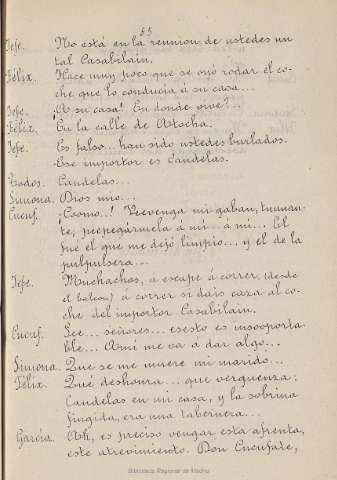 55
Jefe. No está en la reunion de ustedes un
tal Casabilain.
Félix. Hace muy poco que se oyó rodar el co-
che que lo conducia á su casa...
Jefe. ¡A su casa! En donde vive?...
Félix. En la calle de Atocha.
Jefe. Es falso... han sido ustedes burlados.
Ese importor es Candelas.
Todos. Candelas...
Simona. Dios mio...
Eucuf. ¡Coomo..! Veevenga mi gaban, tunan-
te, peepegármela á mi... á mi... El
fué el que me dejó limpio... y el de la
pulpulsera...
Jefe. Muchachos, á escape á correr, (desde
el balcon) á correr si dais caza al co-
che del importor Casabilain.
Eucuf. See... señores... esesto es insooporta-
ble... Ami me va á dar algo...
Simona. Que se me muere mi marido...
Félix. Qué deshonra... que verguenza;
Candelas en mi casa, y la sobrina
fingida, era una tabernera...
García. Ah, es preciso vengar esta afrenta,
este atrevimiento. Don Eucufate,
Biblioteca Regional de Madrid